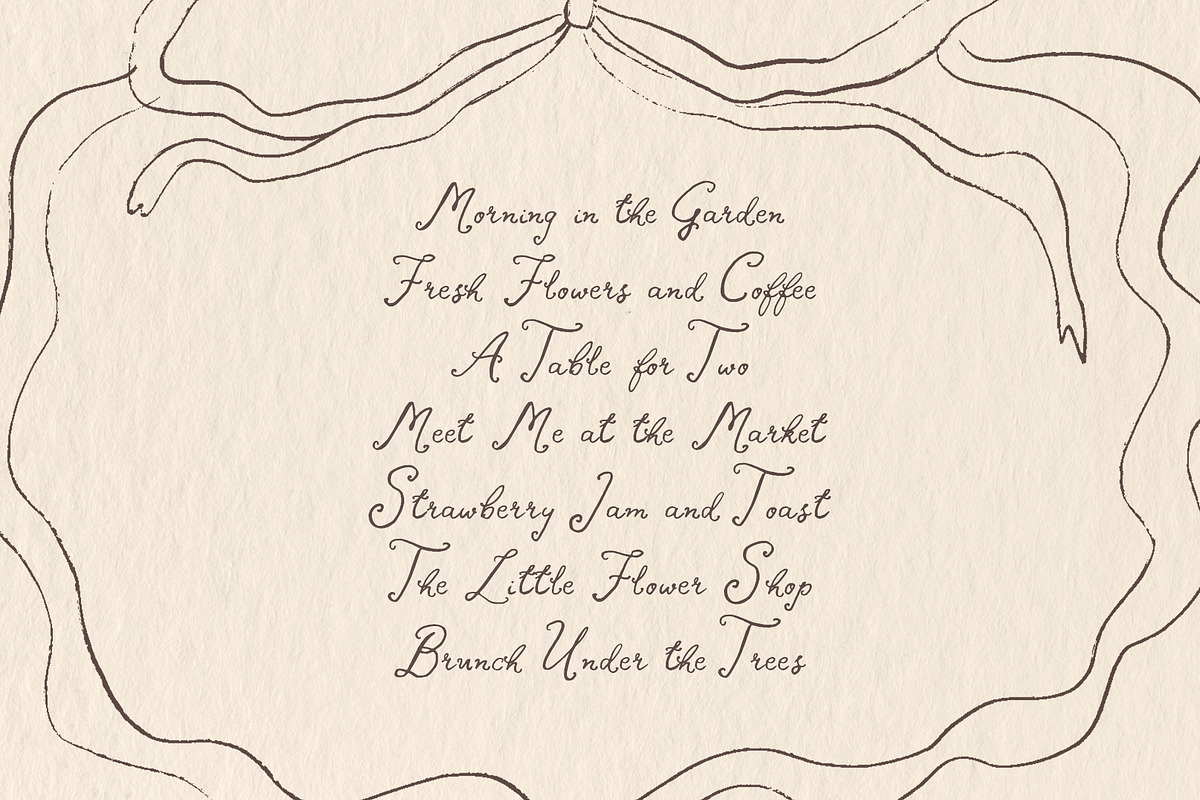 Morning in the Garden
Fresh Flowers and Coffee
A Table for Two
Meet Me at the Market
Strawberry Jam and Toast
The Little Flower Shop
Brunch Under the Trees